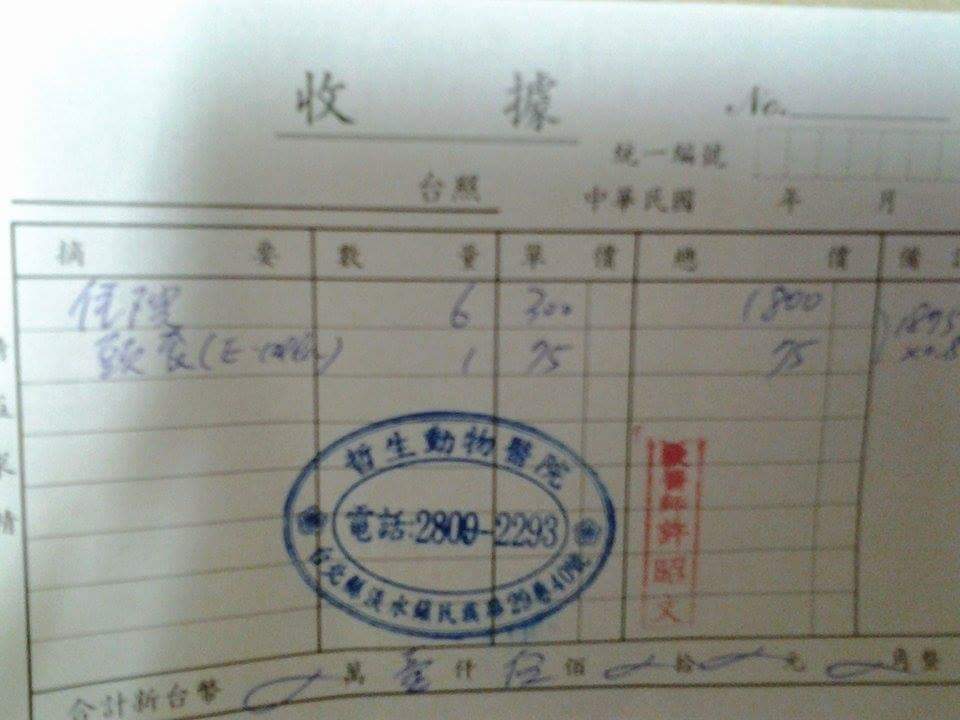 收據
No.
統一編號
台照 中華民國 年 月
摘要 數量 單價 總價 備
住院 6 300 1800 1875
頭套 1 75 75 x0.8
哲生動物醫院
電話:2809-2293
台北縣淡水鎮民 29巷40號
獸醫師許昭文
合計新台幣 萬壹仟伍佰 拾 元 角整